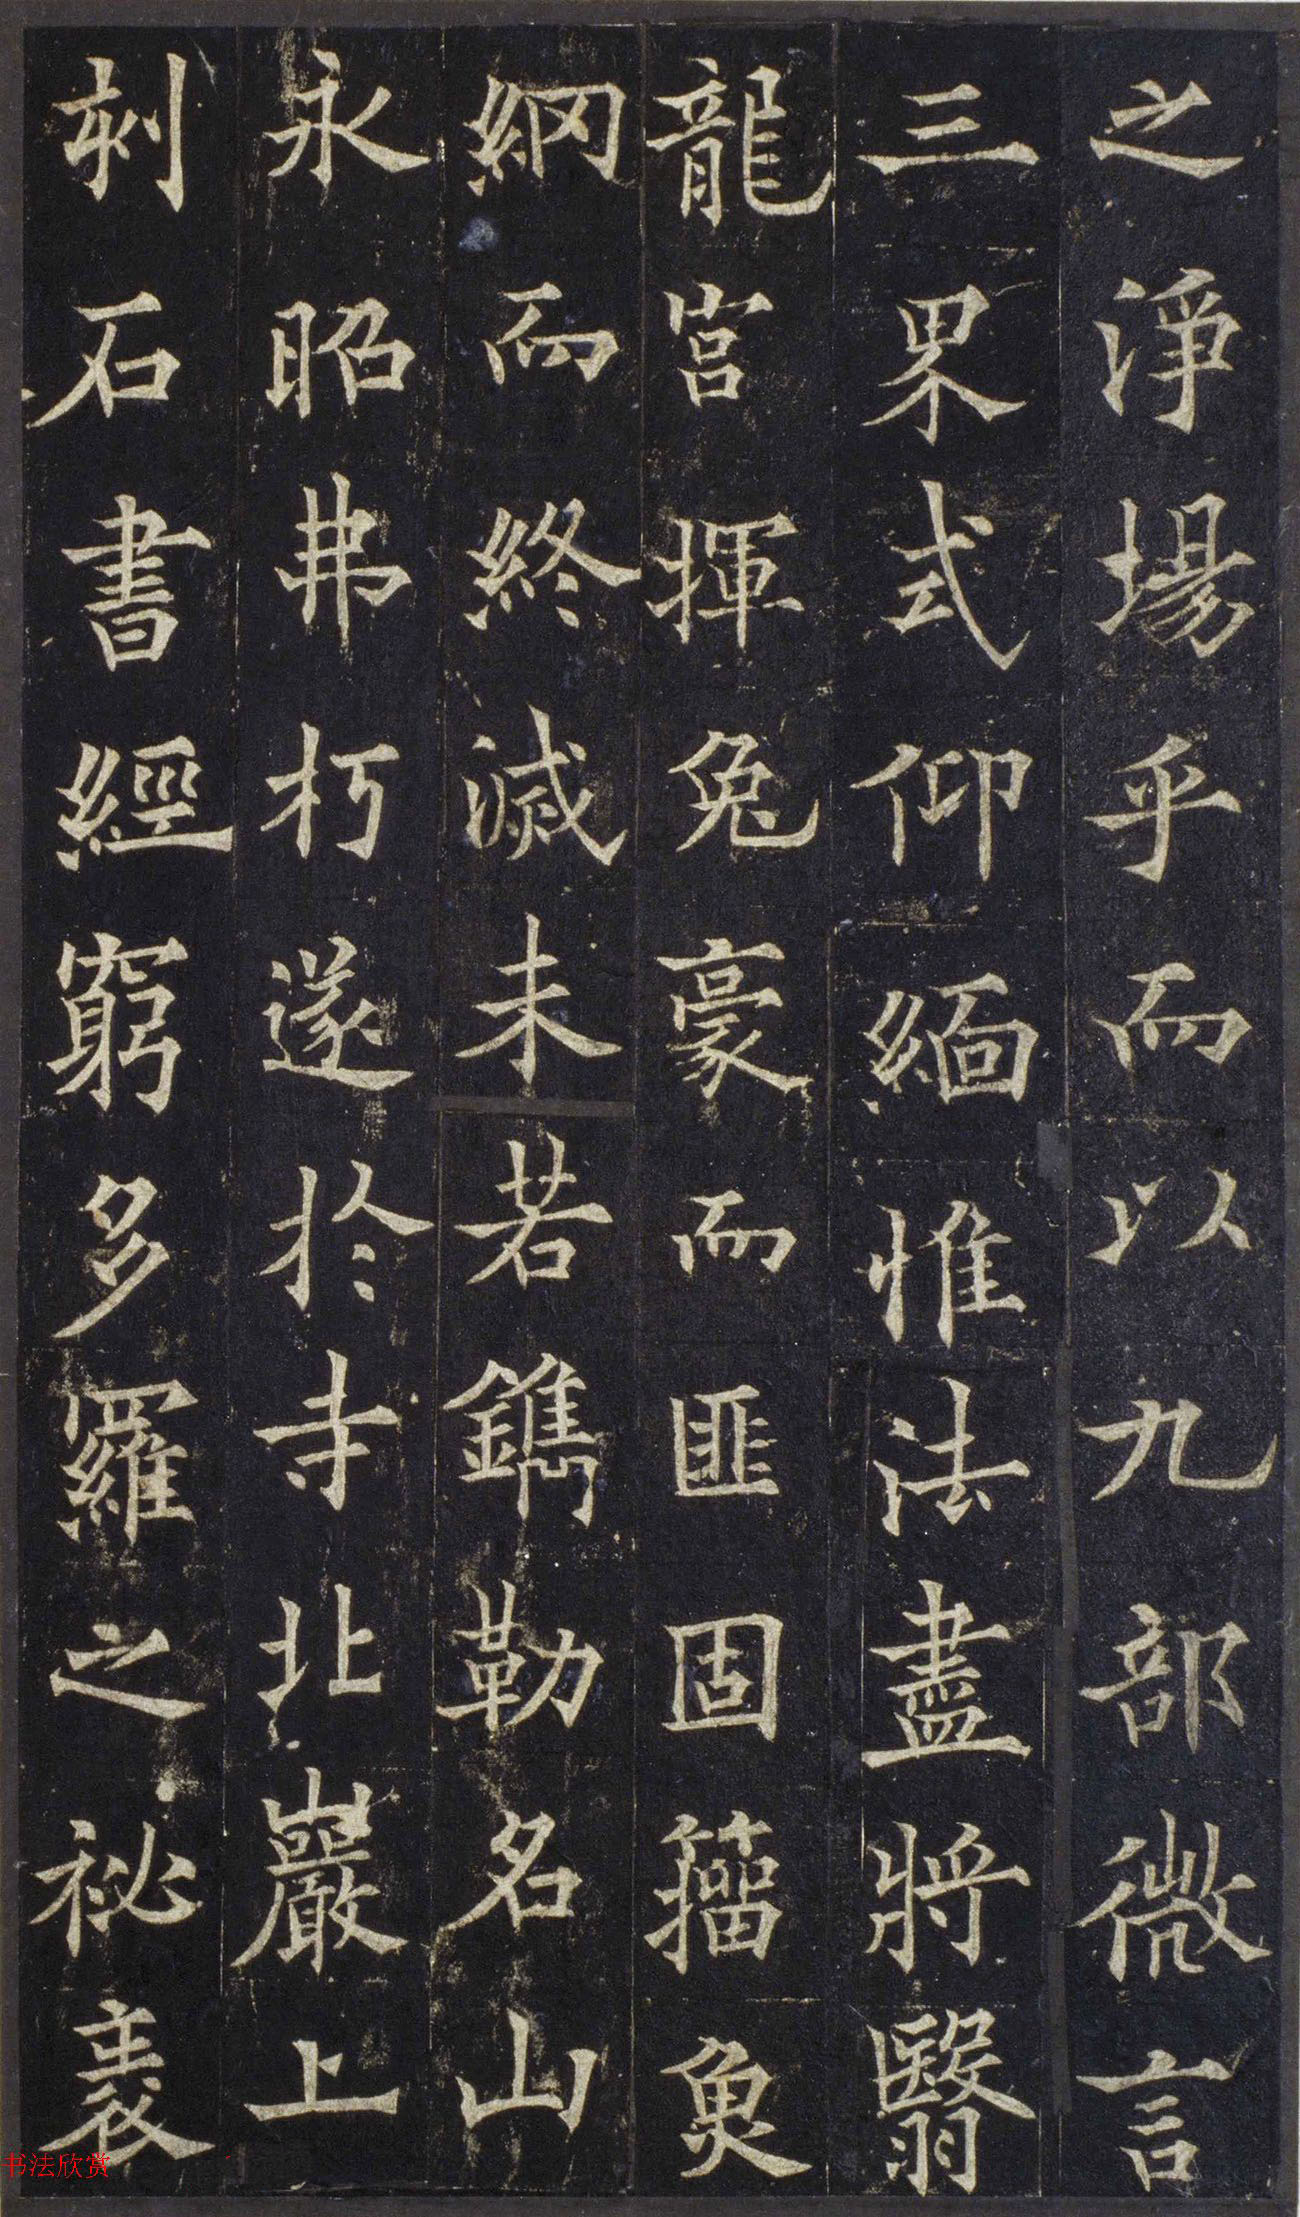 之淨場乎而以九部微言
三界式仰緬惟法盡將翳
龍宮揮兔豪而匪固籀魚
網而終滅未若鐫勒名山
永昭弗朽遂於寺北巖上
刻石書經窮多羅之祕袠
书法欣赏